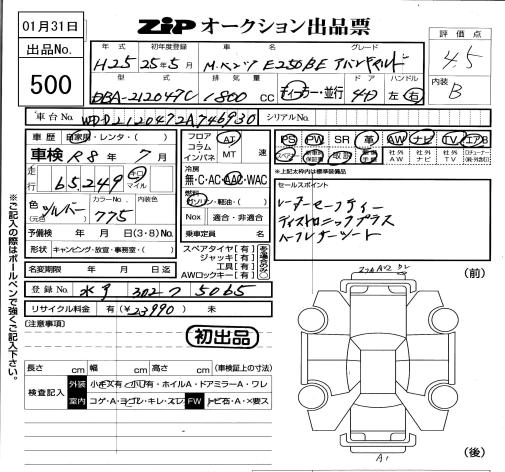 01月31日
ZiP オークション出品票
出品No.
500
年式 初年度登録 車名 グレード
H25 25年5月 M・ベンツ E250BE アバンギャルド
型式 排気量 ドア ハンドル
DBA-212047C 1800 CC ディーラー・並行 4D 左 右
評価点
4.5
内装
B
車台No. WDD2120472A746930 シリアルNo.
車歴 自家用・レンタ・( )
車検 R8年 7月
走行 65,249 キロ マイル
色(元色) シルバー カラーNo. 775 内装色
予備検 年 月 日(3・8)No.
形状 キャンピング・放宣・事務室・( )
名変期限 年 月 日迄
フロア コラム インパネ AT MT 速
冷房 無・C・AC・AAC・WAC
燃料 ガソリン・軽油・( )
Nox 適合・非適合
乗車定員 名
スペアタイヤ[有]
ジャッキ[有]
工具[有]
AWロックキー[有]
PS PW SR 革 AW ナビ TV エアB
スペアキー 新車時保証書 取説 記録簿 社外AW 社外ナビ 社外TV
※上記太枠内は標準装備品
セールスポイント
レーダーセーフティー
ディストロニックプラス
ハーフレザーシート
登録No. 水戸 302 フ 5065
リサイクル料金 有(¥23990) 未
[注意事項]
初出品
長さ cm 幅 cm 高さ cm (車検証上の寸法)
検査記入 外装 小キズ有・小凹有・ホイルA・ドアミラーA・ワレ
室内 コゲ・A・ヨゴレ・キレ・スレ FW トビ石・A・×要ス
(前)
(後)
A1
※ご記入の際はボールペンで強くご記入下さい。